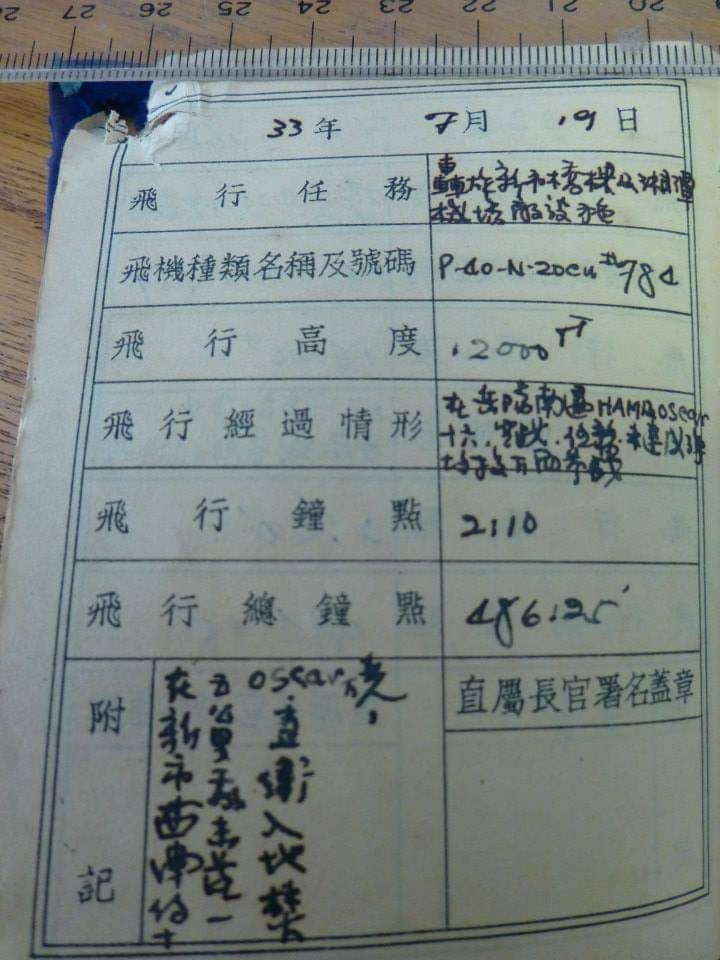 27 26 25 24 23 22 21 20
33年 7月 19日
飛行任務
轟炸新市橋樑及湘潭
機場敵設施
飛機種類名稱及號碼
P-40-N-20cu #784
飛行高度
12000 FT
飛行經過情形
在岳陽南遇HAM及oscar
十六
飛行鐘點
2:10
飛行總鐘點
486:25'
附記
oscar
直衝入地焚
在新市西南約十
直屬長官署名蓋章